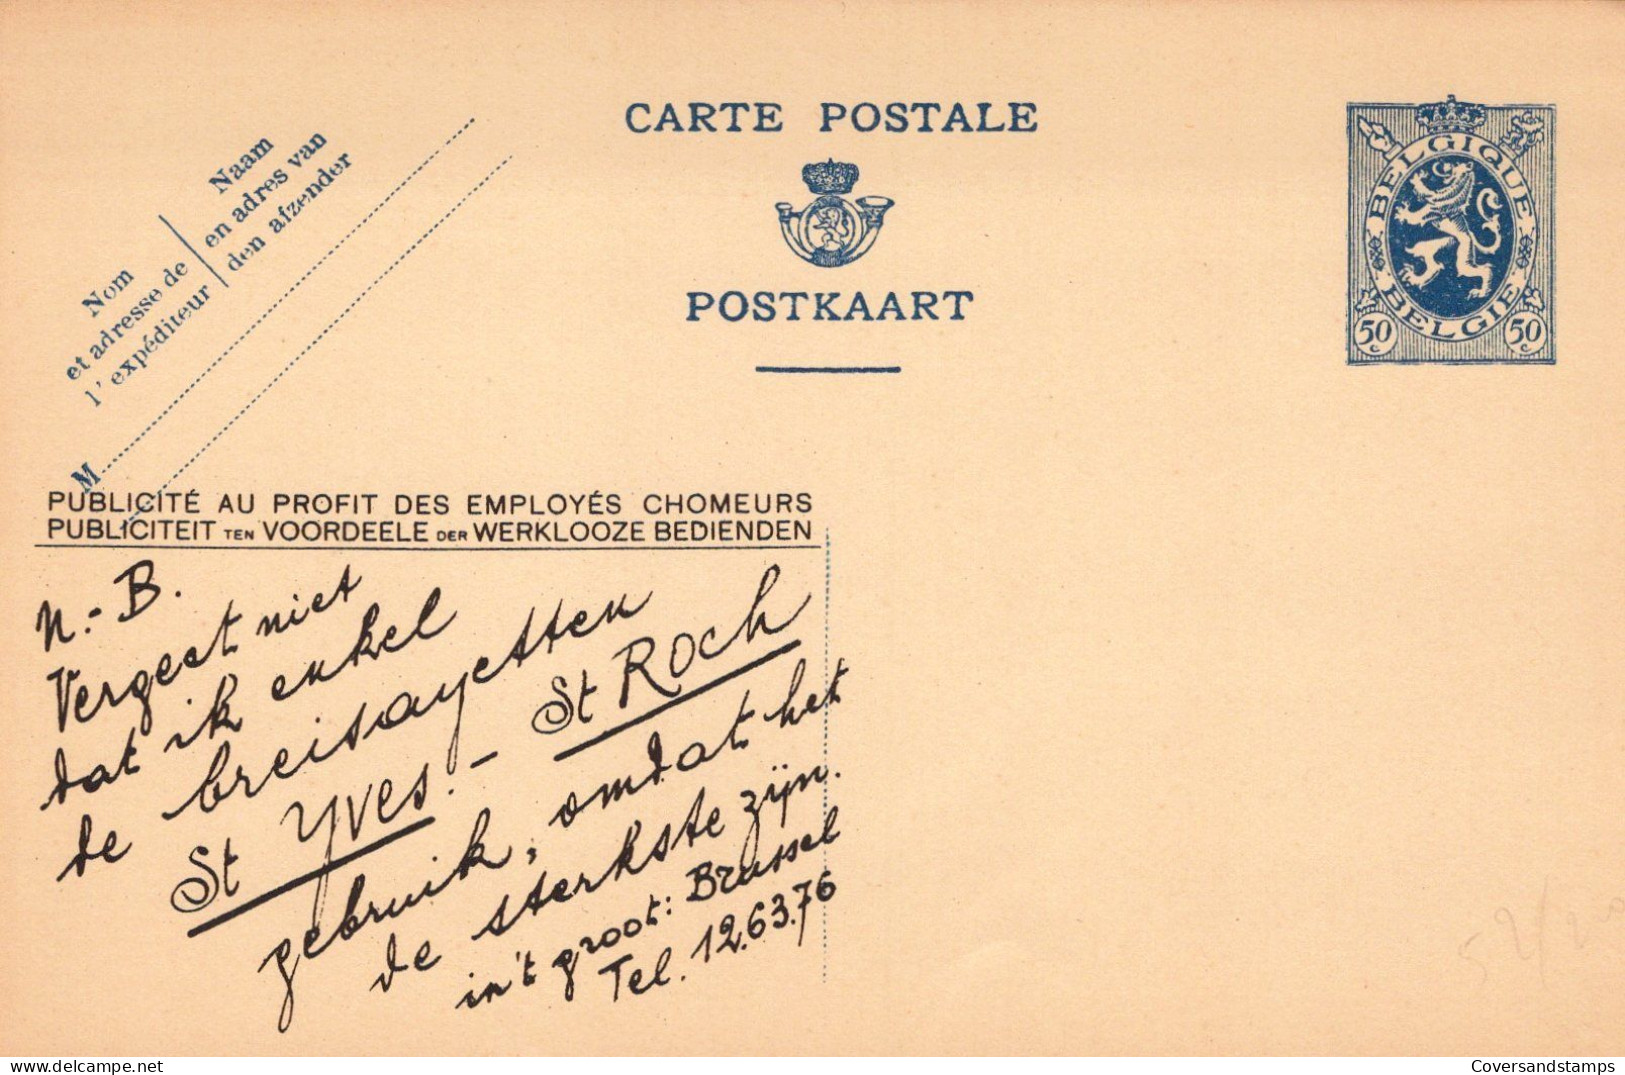 CARTE POSTALE
POSTKAART
BELGIQUE
BELGIE
50 c
50 c
Nom
et adresse de
l'expéditeur
Naam
en adres van
den afzender
M
PUBLICITÉ AU PROFIT DES EMPLOYÉS CHOMEURS
PUBLICITEIT TEN VOORDEELE DER WERKLOOZE BEDIENDEN
N.-B.
Vergeet niet
dat ik enkel
de breisayetten
St YVES. - St ROCH
gebruik, omdat het
de sterkste zijn.
in't groot: Brussel
Tel. 12.63.76
delcampe.net
Coversandstamps